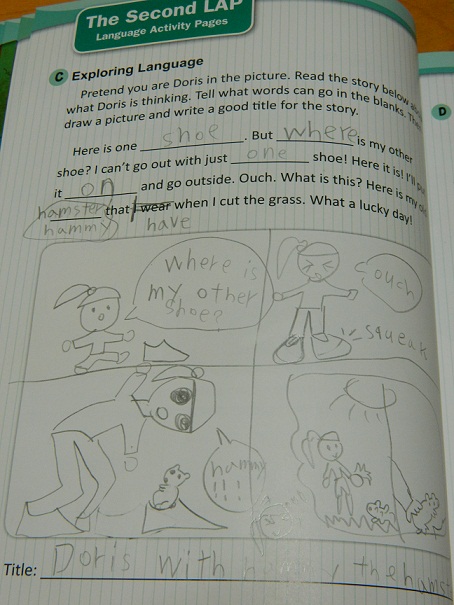 The Second LAP
Language Activity Pages
C Exploring Language
Pretend you are Doris in the picture. Read the story below
what Doris is thinking. Tell what words can go in the blanks. Then
draw a picture and write a good title for the story.
D
Here is one shoe. But where is my other
shoe? I can't go out with just one shoe! Here it is! I'll put
it on and go outside. Ouch. What is this? Here is my
hamster that I wear when I cut the grass. What a lucky day!
hammy have
Where is
my other
shoe?
ouch
squeak
hammy
!!!
Title: Doris with hammy the hamst